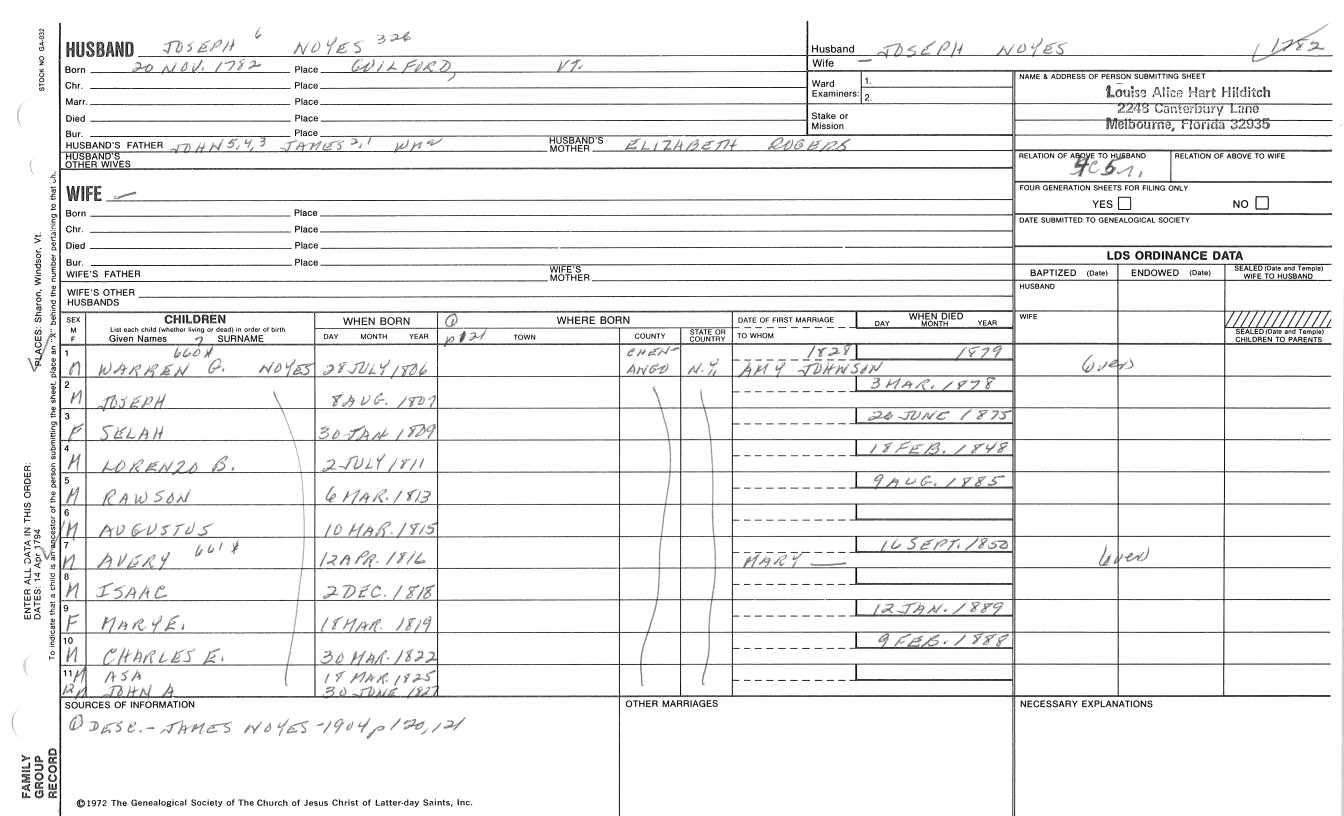 STOCK NO GA-032
HUSBAND JOSEPH 6 NOYES 326
Born 20 NOV. 1782 Place GUILFORD, VT.
Chr. Place
Marr. Place
Died Place
Bur. Place
HUSBAND'S FATHER JOHN 5,4,3 JAMES 2,1 WM HUSBAND'S MOTHER ELIZABETH ROGERS
HUSBAND'S OTHER WIVES
Husband JOSEPH NOYES 1782
Wife
Ward Examiners: 1. 2.
Stake or Mission
NAME & ADDRESS OF PERSON SUBMITTING SHEET
Louise Alice Hart Hilditch
2248 Canterbury Lane
Melbourne, Florida 32935
RELATION OF ABOVE TO HUSBAND RELATION OF ABOVE TO WIFE
FOUR GENERATION SHEETS FOR FILING ONLY
YES NO
DATE SUBMITTED TO GENEALOGICAL SOCIETY
WIFE
Born Place
Chr. Place
Died Place
Bur. Place
WIFE'S FATHER WIFE'S MOTHER
WIFE'S OTHER HUSBANDS
LDS ORDINANCE DATA
BAPTIZED (Date) ENDOWED (Date) SEALED (Date and Temple) WIFE TO HUSBAND
HUSBAND
WIFE
SEALED (Date and Temple) CHILDREN TO PARENTS
SEX M F CHILDREN WHEN BORN ① WHERE BORN DATE OF FIRST MARRIAGE WHEN DIED
List each child (whether living or dead) in order of birth
Given Names 7 SURNAME DAY MONTH YEAR p121 TOWN COUNTY STATE OR COUNTRY TO WHOM DAY MONTH YEAR
1 M WARREN G. 660X NOYES 28 JULY 1806 CHENANGO N.Y. 1828 AMY JOHNSON 1879
2 M JOSEPH 8 AUG. 1807 3 MAR. 1878
3 F SELAH 30 JAN 1809 20 JUNE 1875
4 M LORENZO B. 2 JULY 1811 18 FEB. 1848
5 M RAWSON 6 MAR. 1813 9 AUG. 1885
6 M AUGUSTUS 10 MAR. 1815
7 M AVERY 661X 12 APR. 1816 MARY 16 SEPT. 1850
8 M ISAAC 2 DEC. 1818
9 F MARY E. 18 MAR. 1819 12 JAN. 1889
10 M CHARLES E. 30 MAR. 1822 9 FEB. 1888
11 M ASA 18 MAR. 1825
12 M JOHN A 30 JUNE 1827
SOURCES OF INFORMATION OTHER MARRIAGES NECESSARY EXPLANATIONS
① DESC. - JAMES NOYES - 1904 p120, 121
©1972 The Genealogical Society of The Church of Jesus Christ of Latter-day Saints, Inc.
FAMILY GROUP RECORD
ENTER ALL DATA IN THIS ORDER:
DATES: 14 Apr 1794 PLACES: Sharon, Windsor, Vt.
To indicate that a child is an ancestor of the person submitting the sheet, place an "X" behind the number pertaining to that